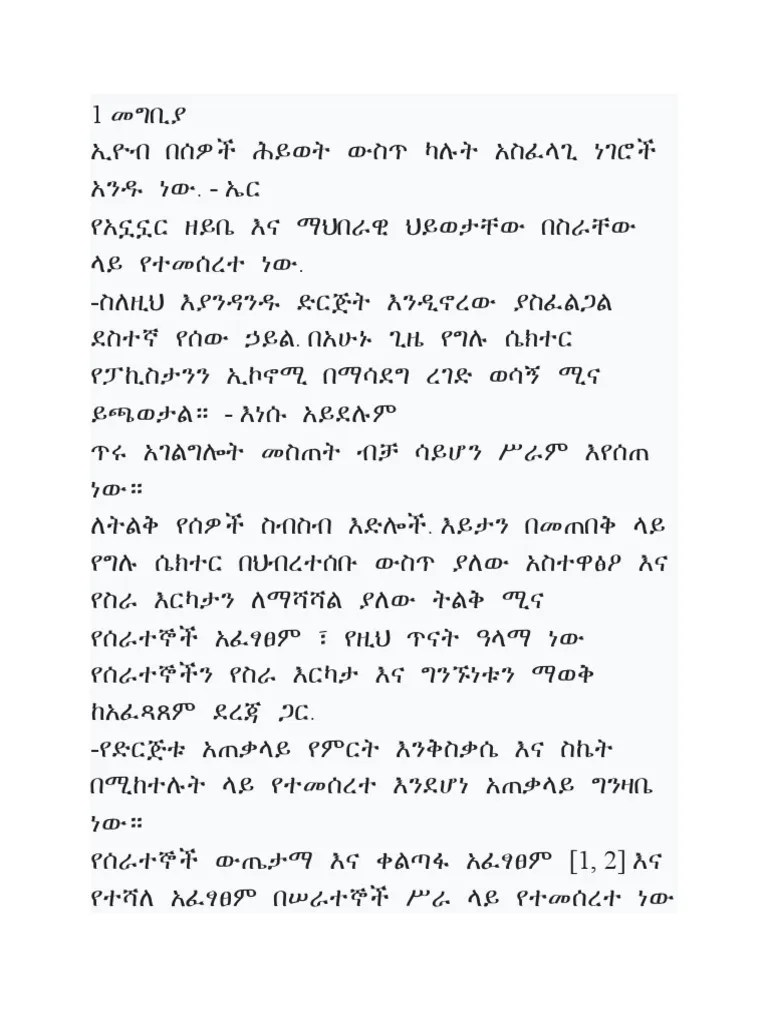 1 መግቢያ
ኢዮብ በሰዎች ሕይወት ውስጥ ካሉት አስፈላጊ ነገሮች
አንዱ ነው. - ኤር
የአኗኗር ዘይቤ እና ማህበራዊ ህይወታቸው በስራቸው
ላይ የተመሰረተ ነው.
-ስለዚህ እያንዳንዱ ድርጅት እንዲኖረው ያስፈልጋል
ደስተኛ የሰው ኃይል. በአሁኑ ጊዜ የግሉ ሴክተር
የፓኪስታንን ኢኮኖሚ በማሳደግ ረገድ ወሳኝ ሚና
ይጫወታል። - እነሱ አይደሉም
ጥሩ አገልግሎት መስጠት ብቻ ሳይሆን ሥራም እየሰጠ
ነው።
ለትልቅ የሰዎች ስብስብ እድሎች. እይታን በመጠበቅ ላይ
የግሉ ሴክተር በህብረተሰቡ ውስጥ ያለው አስተዋፅዖ እና
የስራ እርካታን ለማሻሻል ያለው ትልቅ ሚና
የሰራተኞች አፈፃፀም ፣ የዚህ ጥናት ዓላማ ነው
የሰራተኞችን የስራ እርካታ እና ግንኙነቱን ማወቅ
ከአፈጻጸም ደረጃ ጋር.
-የድርጅቱ አጠቃላይ የምርት እንቅስቃሴ እና ስኬት
በሚከተሉት ላይ የተመሰረተ እንደሆነ አጠቃላይ ግንዛቤ
ነው።
የሰራተኞች ውጤታማ እና ቀልጣፋ አፈፃፀም [1, 2] እና
የተሻለ አፈፃፀም በሠራተኞች ሥራ ላይ የተመሰረተ ነው